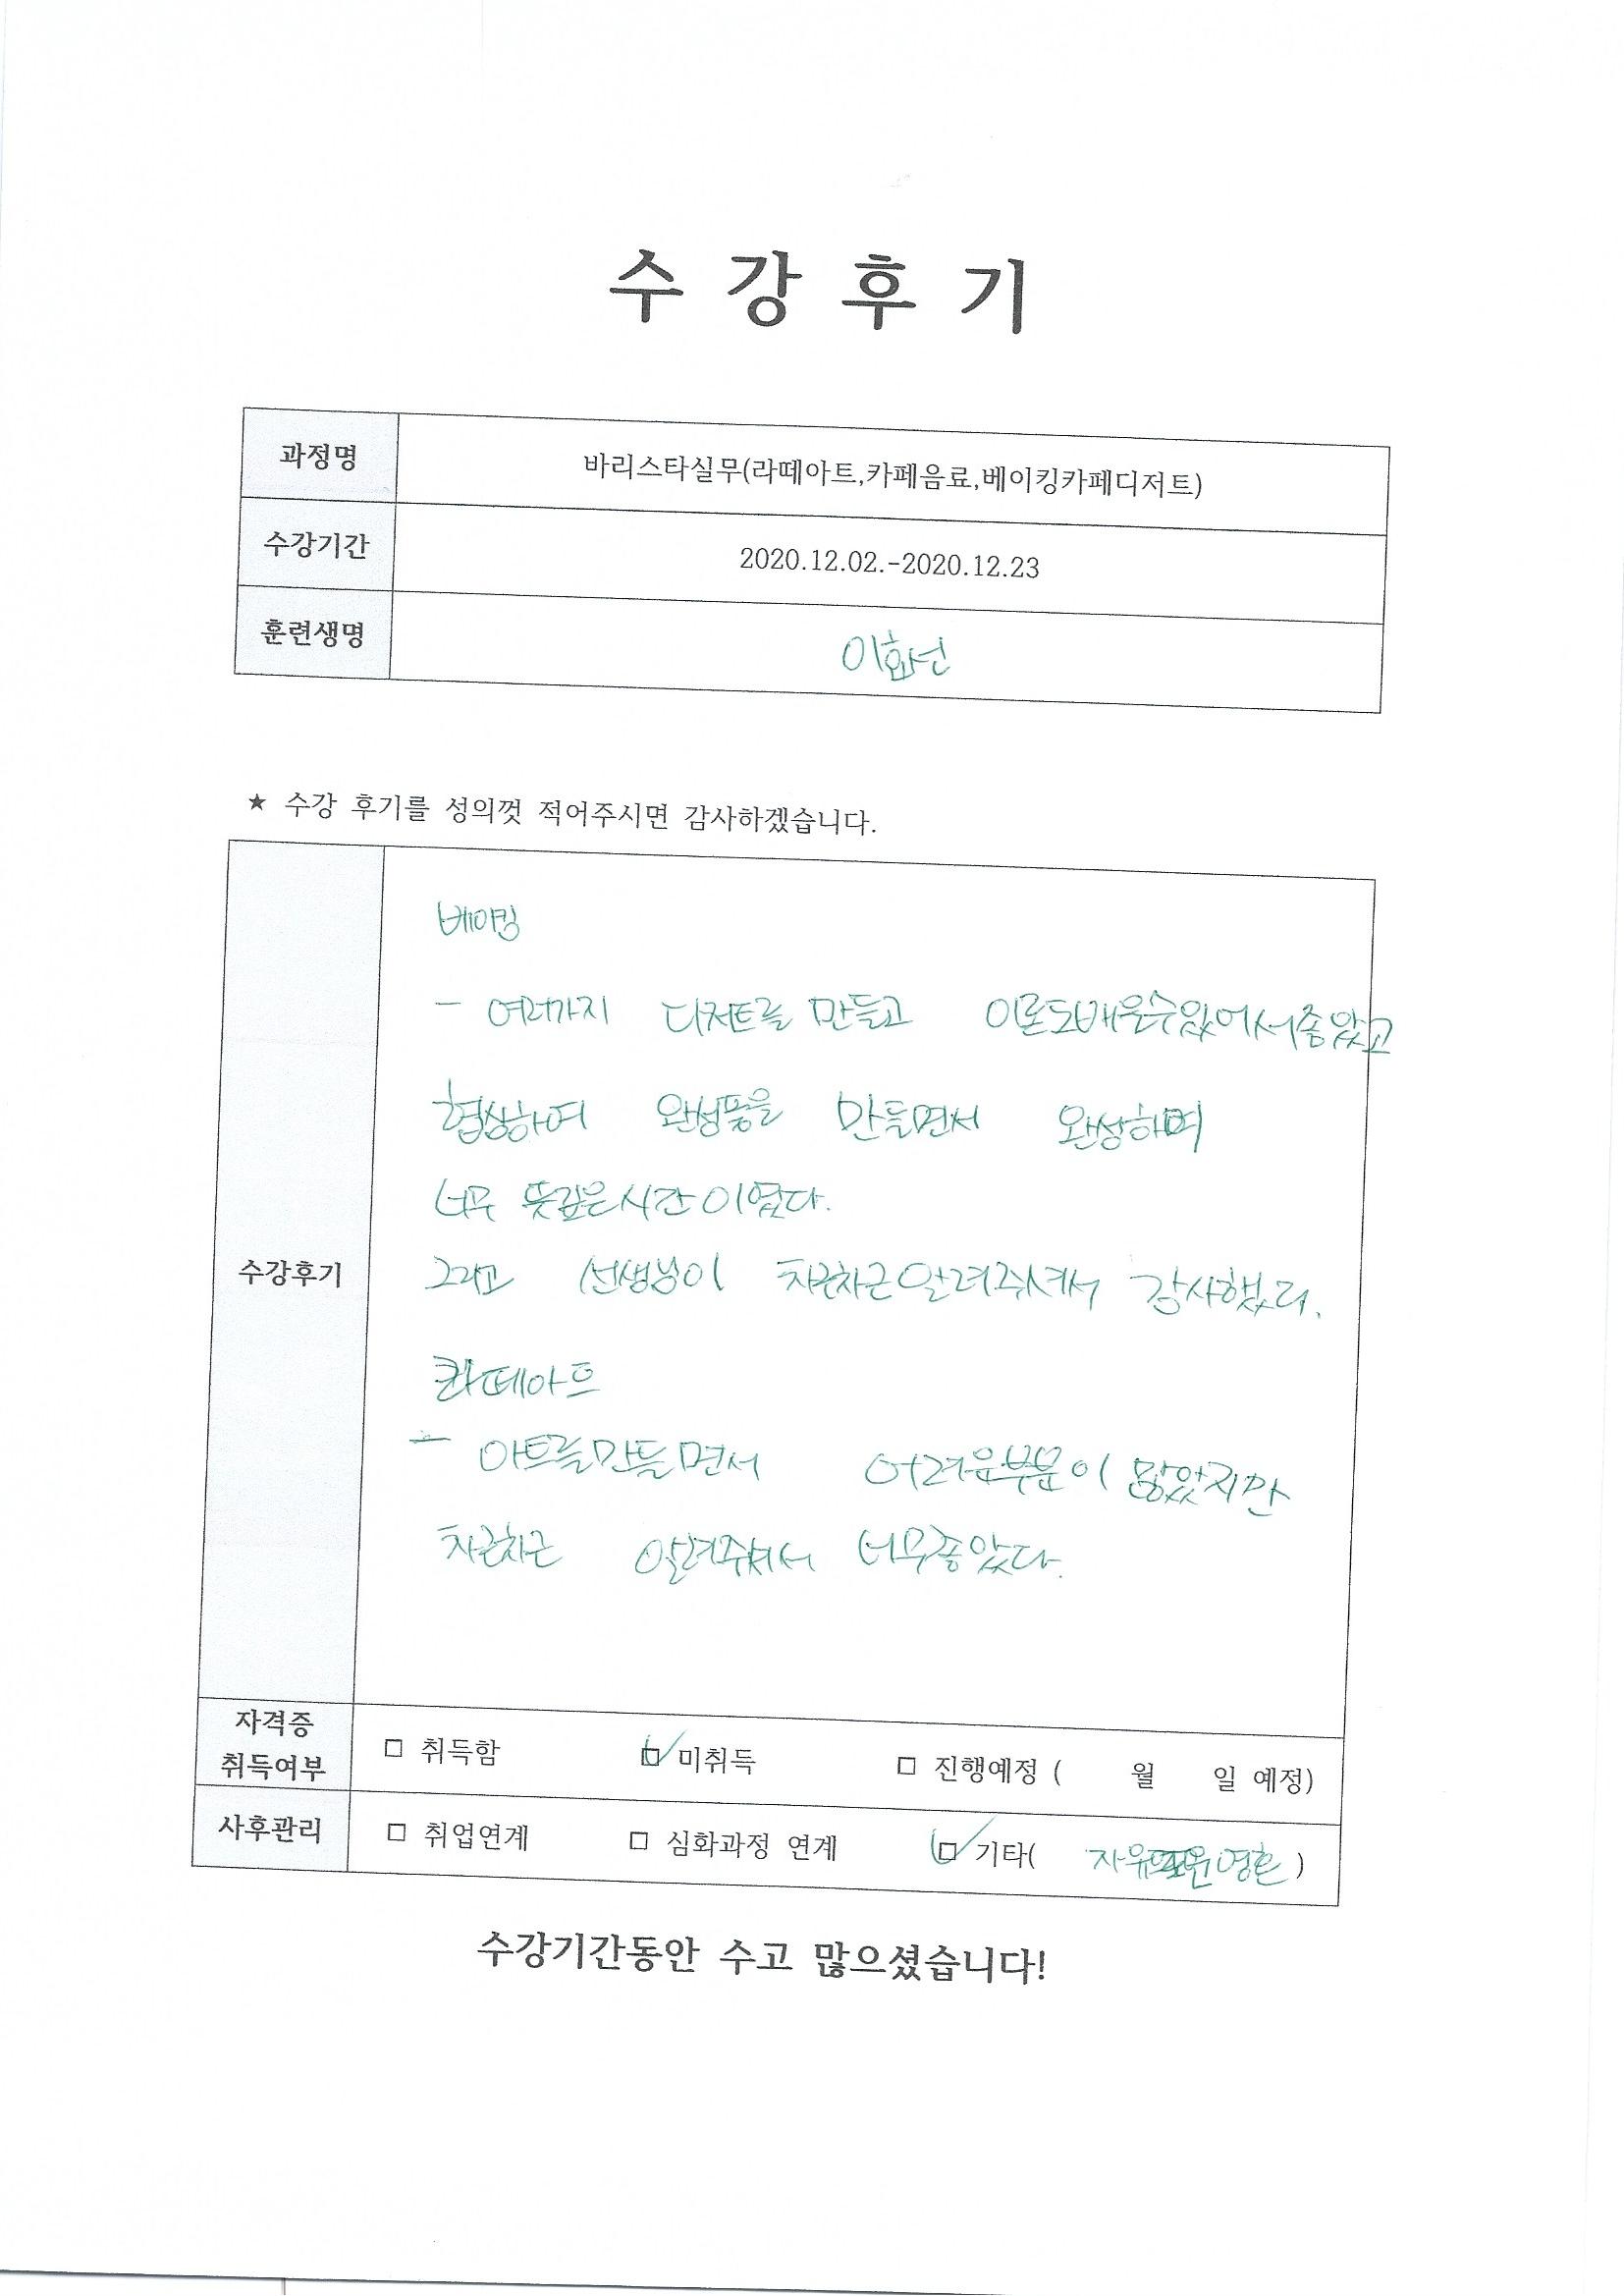 수 강 후 기
과정명 바리스타실무(라떼아트,카페음료,베이킹카페디저트)
수강기간 2020.12.02.-2020.12.23
훈련생명 이화선
★ 수강 후기를 성의껏 적어주시면 감사하겠습니다.
수강후기
베이킹
- 여러가지 디저트를 만들고 이론도배울수있어서좋았고
협상하여 완성품을 만들면서 완상하며
너무 뜻깊은시간이였다.
그리고 선생님이 차근차근알려주셔서 감사했다.
라떼아트
- 아트를만들면서 어려운부분이 많았지만
차근차근 알려주셔서 너무좋았다.
자격증
취득여부 □ 취득함 □ 미취득 □ 진행예정 ( 월 일 예정)
사후관리 □ 취업연계 □ 심화과정 연계 □ 기타( 영혼 )
수강기간동안 수고 많으셨습니다!